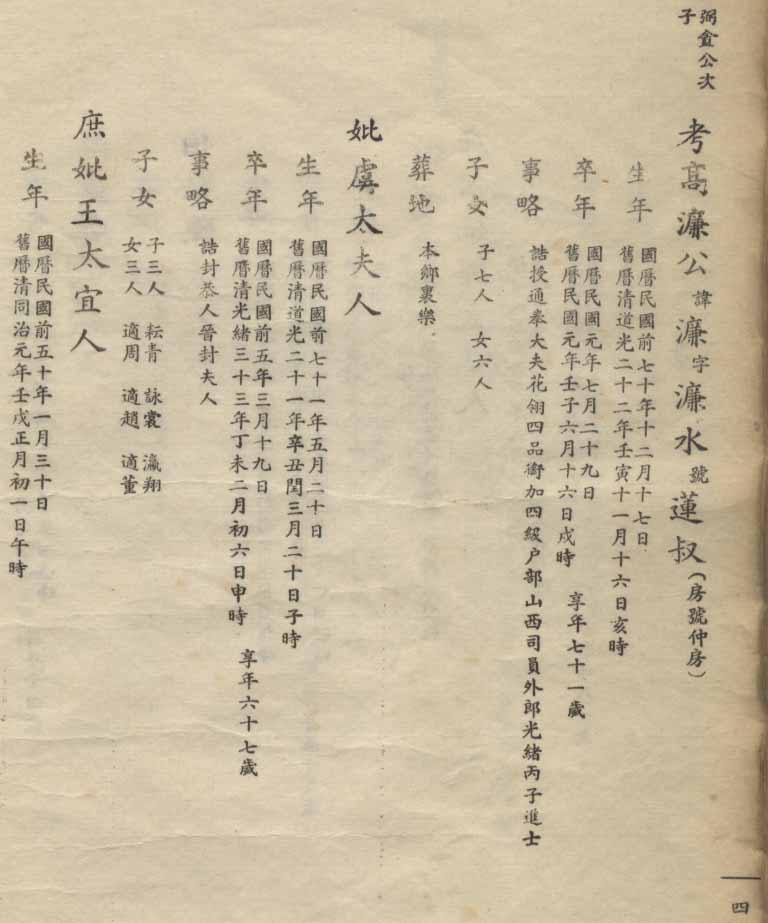 弼金公次
子
考高濂公諱濂字濂水號蓮叔(房號仲房)
生年
國曆民國前七十年十二月十七日
舊曆清道光二十二年壬寅十一月十六日亥時
卒年
國曆民國元年七月二十九日
舊曆民國元年壬子六月十六日戌時 享年七十一歲
事略
誥授通奉大夫花翎四品銜加四級户部山西司員外郎光緒丙子進士
子女
子七人 女六人
葬地
本鄉裏樂
妣虞太夫人
生年
國曆民國前七十一年五月二十日
舊曆清道光二十一年辛丑閏三月二十日子時
卒年
國曆民國前五年三月十九日
舊曆清光緒三十三年丁未二月初六日申時 享年六十七歲
事略
誥封恭人晉封夫人
子女
子三人 耘青 詠裳 瀛翔
女三人 適周 適趙 適董
庶妣王太宜人
生年
國曆民國前五十年一月三十日
舊曆清同治元年壬戌正月初一日午時
四